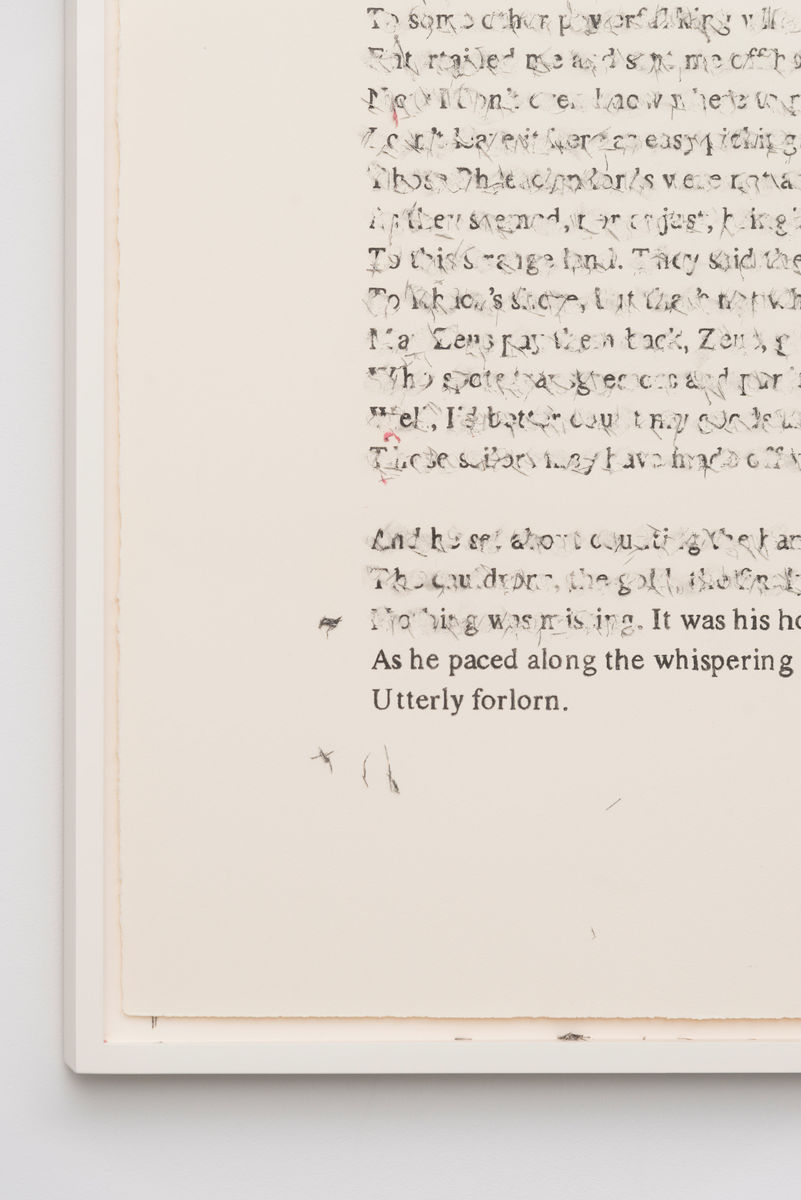 To some other powerful king
Entertained me and sent me off h
Now I don't even know where to p
I can't leave it here as easy picking
Those Phaeacian lords were not a
As they seemed, nor just, bring
To this strange land. They said the
To Ithaca's shore, but that's not wh
May Zeus pay them back, Zeus,
Who spots transgressors and pun
Well, I'd better count my goods
Those sailors may have made off
And he set about counting the han
The cauldrons, the gold, the finely
Nothing was missing. It was his ho
As he paced along the whispering
Utterly forlorn.